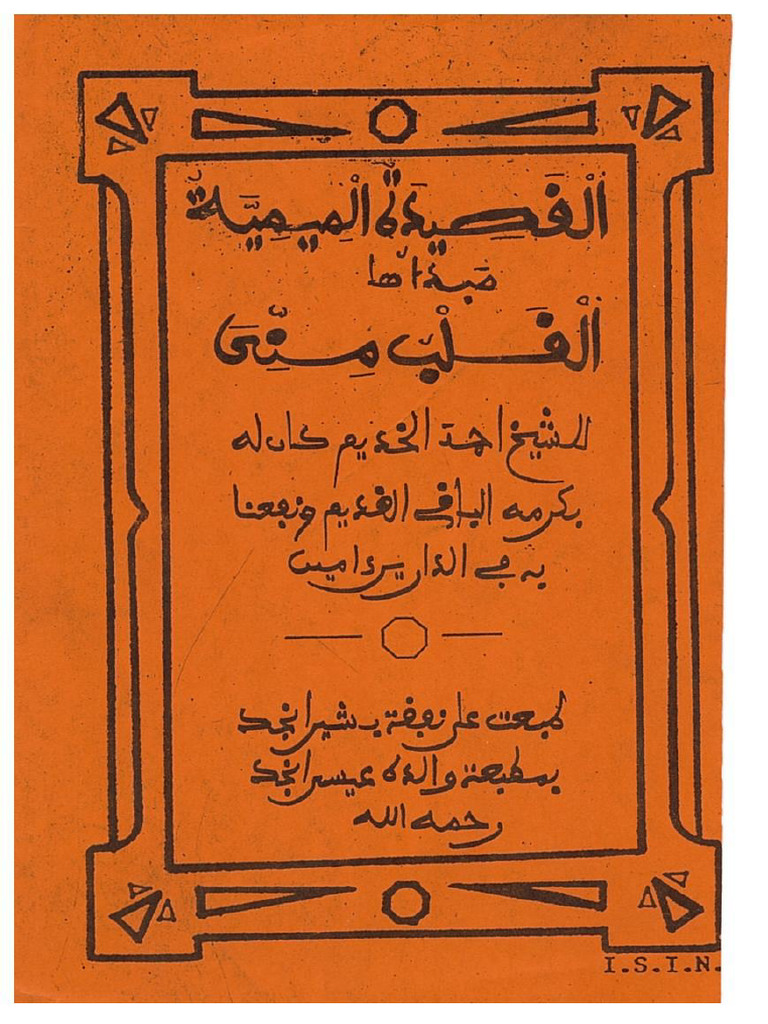 اَلْفَصِيدَةُ الْمِيمِيَّةُ
مبدأها
اَلْفَلْبُ مِنِّى
للشيخ احمد الخديم كان له
بكرمه الباقى القديم ونفعنا
به في الدارين ءامين
طبعت على نفقة بشير انجد
بمطبعة والده عيسى انجد
رحمه الله
I.S.I.N.